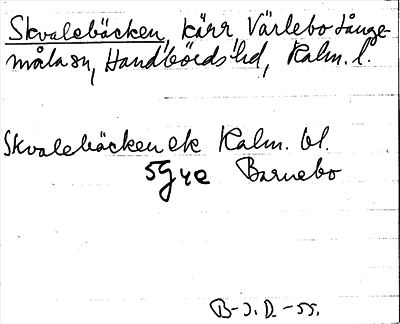 Skvalebäcken, kärr, Värlebo Långe-
måla sn, Handbörds hd, Kalm. l.
Skvalebäcken ek Kalm. bl.
5G4e Barnebo
B-J.D.-55.